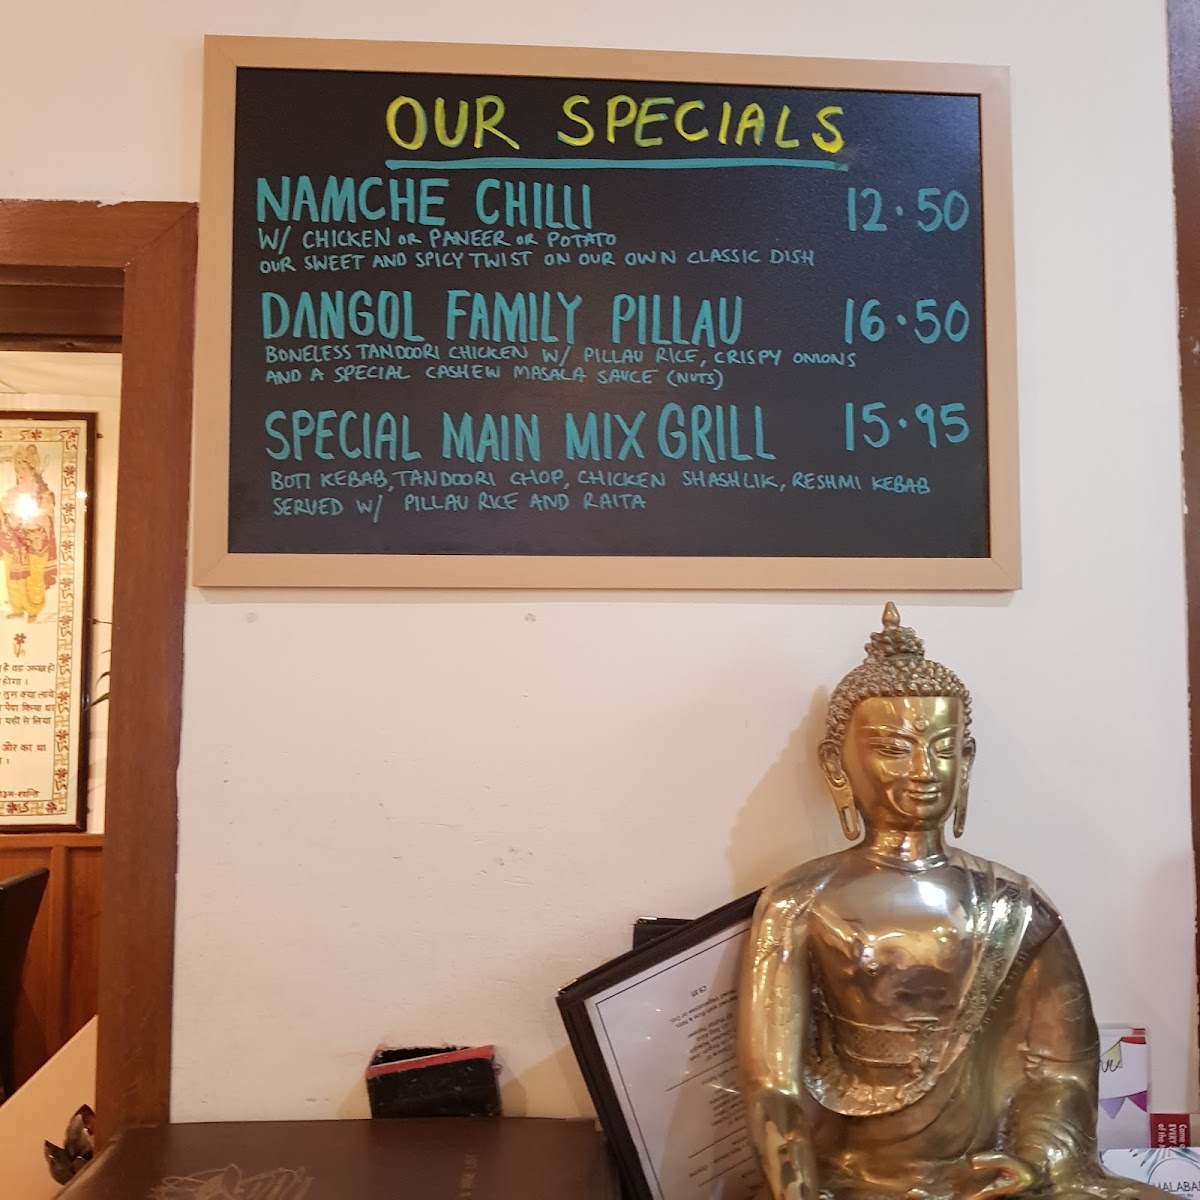 OUR SPECIALS
NAMCHE CHILLI 12.50
W/ CHICKEN OR PANEER OR POTATO
OUR SWEET AND SPICY TWIST ON OUR OWN CLASSIC DISH
DANGOL FAMILY PILLAU 16.50
BONELESS TANDOORI CHICKEN W/ PILLAU RICE, CRISPY ONIONS
AND A SPECIAL CASHEW MASALA SAUCE (NUTS)
SPECIAL MAIN MIX GRILL 15.95
BOTI KEBAB, TANDOORI CHOP, CHICKEN SHASHLIK, RESHMI KEBAB
SERVED W/ PILLAU RICE AND RAITA
है वह अच्छा हो
होगा ।
तुम क्या लाये
पैदा किया था
यहीं से लिया
और का था
।
Come
EVERY
of the
MALABA